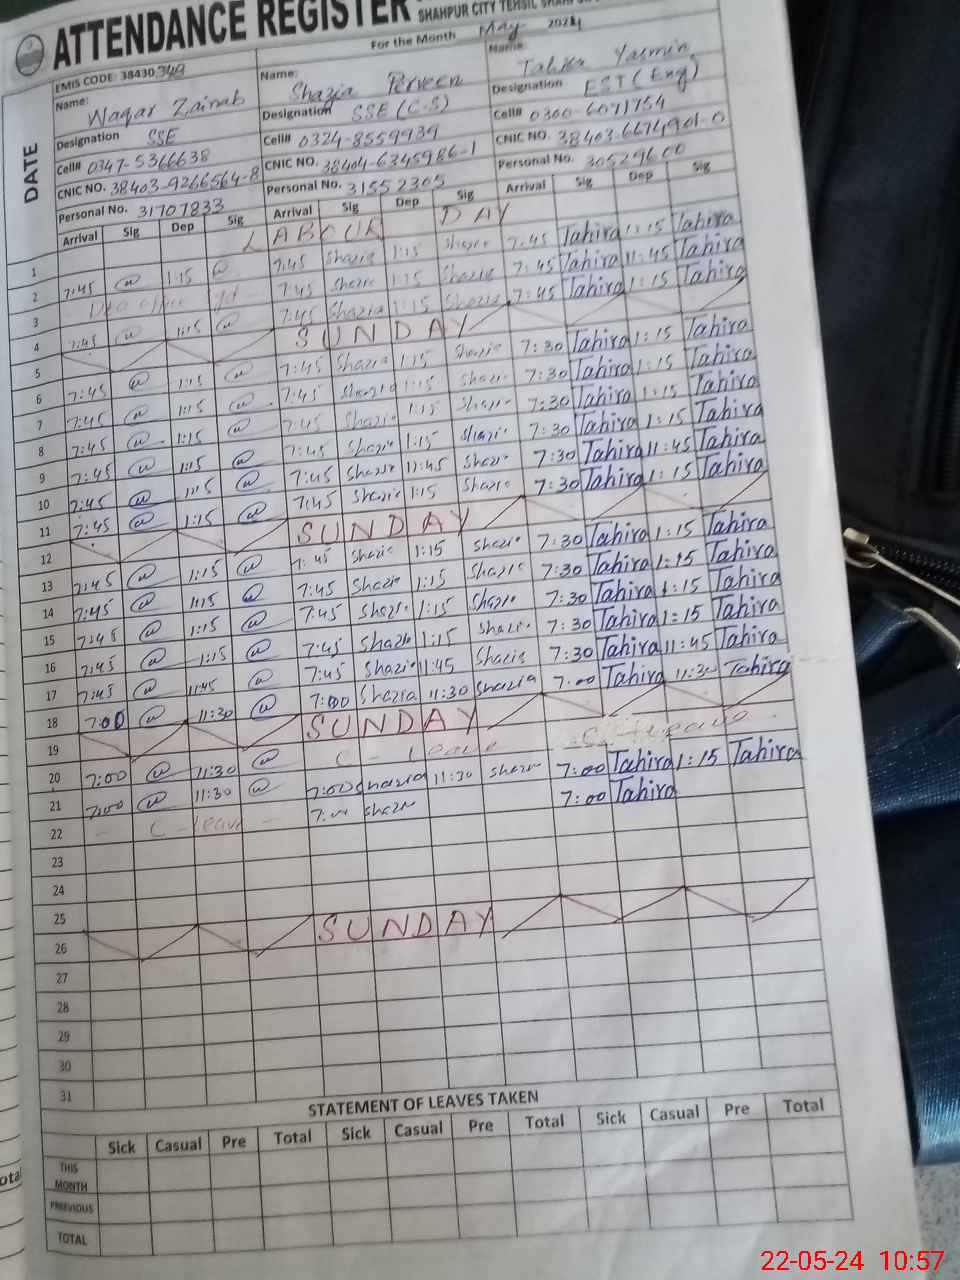 ATTENDANCE REGISTER SHAHPUR CITY TEHSIL
For the Month May 2024
EMIS CODE: 38430349
Name: Waqar Zainab
Designation SSE
Cell# 0347-5366638
CNIC NO. 38403-9266564-8
Personal No. 31707833
Name: Shazia Perveen
Designation SSE (C.S)
Cell# 0324-8559939
CNIC NO. 38404-6345986-1
Personal No. 31552305
Name: Yasmin
Designation EST (Eng)
Cell# 0300-6071754
CNIC NO. 38403-6674901-0
Personal No. 30529600
DATE Arrival Sig Dep Sig Arrival Sig Dep Sig Arrival Sig Dep Sig
1 LABOUR DAY
2 7:45 @ 1:15 @ 7:45 Shazia 1:15 Shazia 7:45 Tahira 1:15 Tahira
3 7:45 Shazia 1:15 Shazia 7:45 Tahira 11:45 Tahira
4 7:45 @ 1:15 @ 7:45 Shazia 1:15 Shazia 7:45 Tahira 1:15 Tahira
5 SUNDAY
6 7:45 @ 1:15 @ 7:45 Shazia 1:15 Shazia 7:30 Tahira 1:15 Tahira
7 7:45 @ 1:15 @ 7:45 Shazia 1:15 Shazia 7:30 Tahira 1:15 Tahira
8 7:45 @ 1:15 @ 7:45 Shazia 1:15 Shazia 7:30 Tahira 1:15 Tahira
9 7:45 @ 1:15 @ 7:45 Shazia 1:15 Shazia 7:30 Tahira 1:15 Tahira
10 7:45 @ 1:15 @ 7:45 Shazia 11:45 Shazia 7:30 Tahira 11:45 Tahira
11 7:45 @ 1:15 @ 7:45 Shazia 1:15 Shazia 7:30 Tahira 1:15 Tahira
12 SUNDAY
13 7:45 @ 1:15 @ 7:45 Shazia 1:15 Shazia 7:30 Tahira 1:15 Tahira
14 7:45 @ 1:15 @ 7:45 Shazia 1:15 Shazia 7:30 Tahira 1:15 Tahira
15 7:45 @ 1:15 @ 7:45 Shazia 1:15 Shazia 7:30 Tahira 1:15 Tahira
16 7:45 @ 1:15 @ 7:45 Shazia 1:15 Shazia 7:30 Tahira 1:15 Tahira
17 7:45 @ 11:45 @ 7:45 Shazia 11:45 Shazia 7:30 Tahira 11:45 Tahira
18 7:00 @ 11:30 @ 7:00 Shazia 11:30 Shazia 7:00 Tahira 11:30 Tahira
19 SUNDAY
20 7:00 @ 11:30 @ C - Leave Leave
21 7:00 @ 11:30 @ 7:00 Shazia 11:30 Shazia 7:00 Tahira 1:15 Tahira
22 - C - Leave - 7:00 Shazia 7:00 Tahira
23
24
25
26 SUNDAY
27
28
29
30
31
STATEMENT OF LEAVES TAKEN
Sick Casual Pre Total Sick Casual Pre Total Sick Casual Pre Total
THIS MONTH
PREVIOUS
TOTAL
22-05-24 10:57